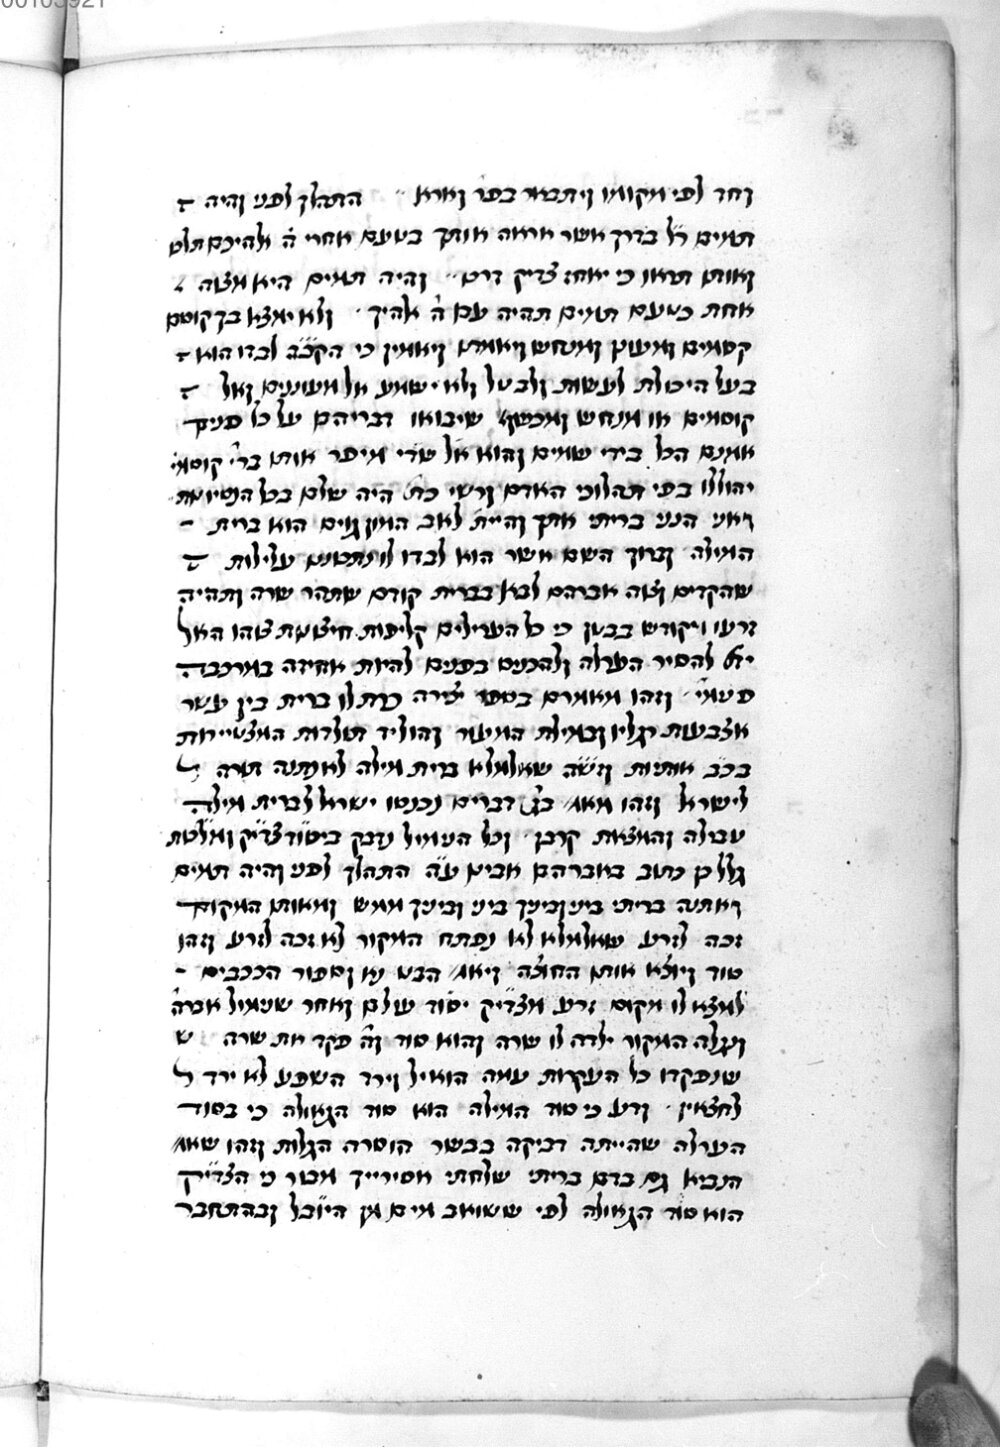 וחד לפי מקומו ויתבאר בפר׳ וארא ׳׳ התהלך לפני והיה
תמים ר״ל בדרך אשר אראה אותך בטעם אחרי ה׳ אלהיכם תלכו
ואותו תראו כי יאחז צדיק דרכו ׳׳ והיה תמים היא מצוה
אחת כטעם תמים תהיה עם ה׳ אלהיך ׳ ולא ימצא בך קוסם
קסמים ומעונן ומנחש ויאמין כי הקב״ה לבדו הוא
בעל היכולת לעשות ולבטל ולא ישמע אל מעוננים ואל
קוסמים או מנחש ומכשף שיבואו דבריהם על כל פנים
אמנם הכל בידי שמים והוא אל שדי מיפר אותות בדי׳ קוסמי׳
יהוללו כפי תהלוכי האדם ורש״י כת׳ היה שלם בכל הנסיונות
ואני הנני בריתי אתך והיית לאב המון גוים הוא ברית
המילה וברוך השם אשר הוא לבדו לו נתכנו עלילות
שהקדים וצוה אברהם לבא בברית קודם שתהר שרה ותהיה
זרעו ויקודש בבטן כי כל הערלים קליפות חיצונות צוהו האל
ית׳ להסיר הערלה ולהכניס בפנים להיות אחיזה במרכבה
וזהו מאמרם בספר יצירה כרת לו ברית בין עשר
אצבעות רגליו ובמילת המעור והוליד תולדות המצטיירות
בכ״ב אותיות וז״ש שאלמלא ברית מילה לא נתנה תורה
לישראל וזהו מאמ׳ בג׳ דברים נכנסו ישראל לברית מילה
טבילה והרצאת קרבן ׳ וכל הנימול נדבק ביסוד צדיק ומלכות
גלל כן כתוב באברהם אבינו ע״ה התהלך לפני והיה תמים
ואתנה בריתי ביני ובינך ביני ובינך ממש ומאותו המקום
זכה לזרע שאלמלא לא נפתח המקור לא זכה לזרע וזהו
סוד ויוצא אותו החוצה ויאמ׳ הבט נא וספור הככבים
למצא לו מקום זרע מצדיק יסוד עולם ואחר שנימול אברה׳
ונגלה המקור ילדה לו שרה והוא סוד וה׳ פקד את שרה
שנפקדו כל העקרות עמה הואיל וירד השפע לא ירד
לחצאין ׳ ודע כי סוד המילה הוא סוד הגאולה כי בסוד
הערלה שהייתה דביקה בבשר הוסרה הגלות וזהו שאמ׳
הנביא גם בדם בריתך שלחתי אסירייך מבור כי הצדיק
הוא סוד הגאולה לפי ששואב מים מן היובל ובהתחבר